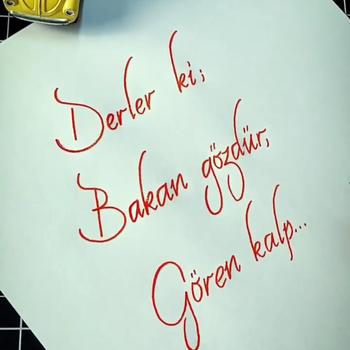 Derler ki;
Bakan gözdür,
Gören kalp...